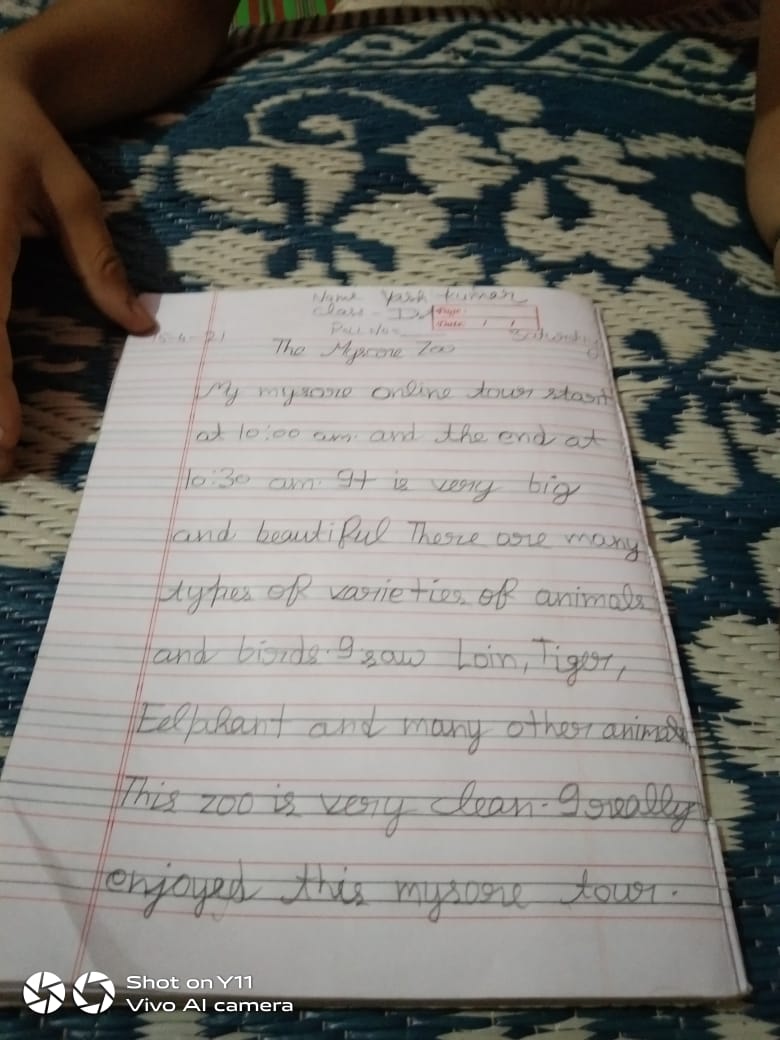 Name Yash kumar
Class -
Roll No
Page:
Date: / /
-4-21
The Mysore Zoo
My mysore online tour start
at 10:00 am. and the end at
10:30 am. It is very big
and beautiful There are many
types of varieties of animals
and birds. I saw Loin, Tiger,
Eelphant and many other animals
This zoo is very clean. I really
enjoyed this mysore tour.
Shot on Y11
Vivo AI camera